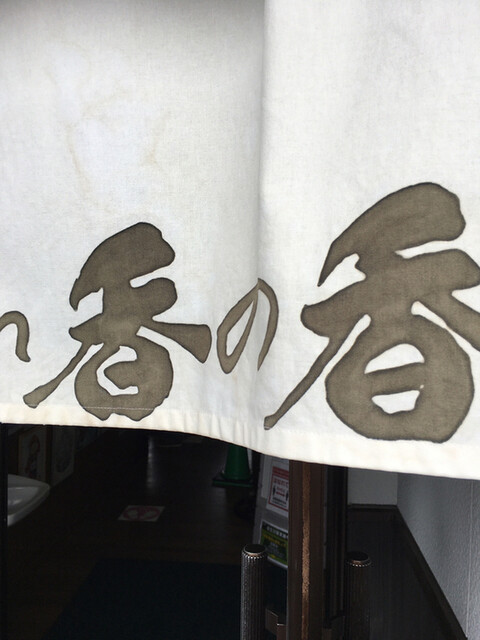 香の香